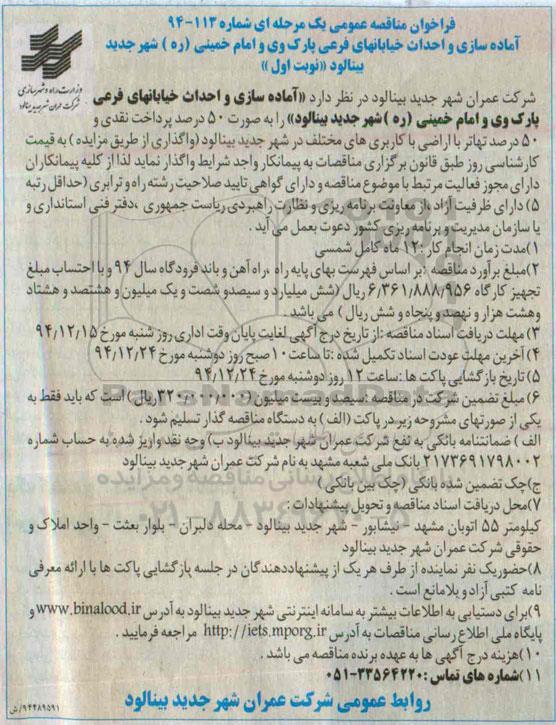 فراخوان مناقصه عمومی یک مرحله ای شماره ۱۱۳-۹۴
آماده سازی و احداث خیابانهای فرعی پارک وی و امام خمینی (ره) شهر جدید
بینالود «نوبت اول»
وزارت راه و شهرسازی
شرکت عمران شهر جدید بینالود
شرکت عمران شهر جدید بینالود در نظر دارد «آماده سازی و احداث خیابانهای فرعی
پارک وی و امام خمینی (ره) شهر جدید بینالود» را به صورت ۵۰ درصد پرداخت نقدی و
۵۰ درصد تهاتر با اراضی با کاربری های مختلف در شهر جدید بینالود (واگذاری از طریق مزایده) به قیمت
کارشناسی روز طبق قانون برگزاری مناقصات به پیمانکار واجد شرایط واگذار نماید لذا از کلیه پیمانکاران
دارای مجوز فعالیت مرتبط با موضوع مناقصه و دارای گواهی تایید صلاحیت رشته راه و ترابری (حداقل رتبه
۵) دارای ظرفیت آزاد ،از معاونت برنامه ریزی و نظارت راهبردی ریاست جمهوری ،دفتر فنی استانداری و
یا سازمان مدیریت و برنامه ریزی کشور دعوت بعمل می آید .
۱)مدت زمان انجام کار :۱۲ ماه کامل شمسی
۲)مبلغ برآورد مناقصه :بر اساس فهرست بهای پایه راه ،راه آهن و باند فرودگاه سال ۹۴ و با احتساب مبلغ
تجهیز کارگاه ۶/۳۶۱/۸۸۸/۹۵۶ ریال (شش میلیارد و سیصدو شصت و یک میلیون و هشتصد و هشتاد
وهشت هزار و نهصد و پنجاه و شش ریال ) می باشد .
۳) مهلت دریافت اسناد مناقصه :از تاریخ درج آگهی لغایت پایان وقت اداری روز شنبه مورخ ۹۴,۱۲,۱۵
۴) آخرین مهلت عودت اسناد تکمیل شده :تا ساعت ۱۰ صبح روز دوشنبه مورخ ۹۴,۱۲,۲۴
۵) تاریخ بازگشایی پاکت ها :ساعت ۱۲ روز دوشنبه مورخ ۹۴,۱۲,۲۴
۶) مبلغ تضمین شرکت در مناقصه :سیصد و بیست میلیون (۳۲۰,۰۰۰,۰۰۰ریال) است که باید فقط به
یکی از صورتهای مشروحه زیر در پاکت (الف) به دستگاه مناقصه گذار تسلیم شود .
الف) ضمانتنامه بانکی به نفع شرکت عمران شهر جدید بینالود ب) وجه نقد واریز شده به حساب شماره
۲۱۷۳۶۹۱۷۹۸۰۰۲ بانک ملی شعبه مشهد به نام شرکت عمران شهر جدید بینالود
ج)چک تضمین شده بانکی (چک بین بانکی)
۷)محل دریافت اسناد مناقصه و تحویل پیشنهادات :
کیلومتر ۵۵ اتوبان مشهد - نیشابور - شهر جدید بینالود - محله دلبران - بلوار بعثت - واحد املاک و
حقوقی شرکت عمران شهر جدید بینالود
۸)حضور یک نفر نماینده از طرف هر یک از پیشنهاددهندگان در جلسه بازگشایی پاکت ها با ارائه معرفی
نامه کتبی آزاد و بلامانع است .
۹)برای دستیابی به اطلاعات بیشتر به سامانه اینترنتی شهر جدید بینالود به آدرس www.binalood.ir و
پایگاه ملی اطلاع رسانی مناقصات به آدرس http://iets.mporg.ir مراجعه فرمایید .
۱۰)هزینه درج آگهی ها به عهده برنده مناقصه می باشد .
۱۱)شماره های تماس :۳۳۵۶۴۲۲۰-۰۵۱
روابط عمومی شرکت عمران شهر جدید بینالود
۹۴۴۸۹۵۹۱/ش